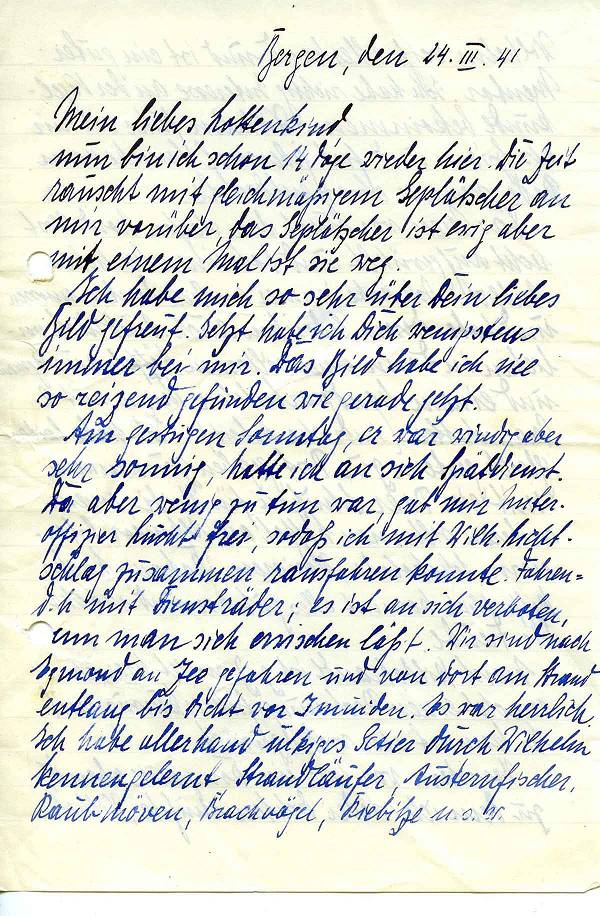 Bergen, den 24. III. 41
Mein liebes Lottenkind
nun bin ich schon 14 Tage wieder hier. Die Zeit
rauscht mit gleichmäßigem Geplätscher an
mir vorüber, das Geplätscher ist ewig aber
mit einem Mal ist sie weg.
Ich habe mich so sehr über Dein liebes
Bild gefreut. Jetzt habe ich Dich wenigstens
immer bei mir. Das Bild habe ich nie
so reizend gefunden wie gerade jetzt.
Am gestrigen Sonntag, er war windig aber
sehr sonnig, hatte ich an sich Spätdienst.
Da aber wenig zu tun war, gab mir Unter-
offizier frei, sodaß ich mit Wilh. Licht-
schlag zusammen rausfahren konnte. Fahren=
d. h mit Diensträder; es ist an sich verboten,
enn man sich erwischen läßt. Wir sind nach
Egmond an Zee gefahren und von dort am Strand
entlang bis dicht vor Imuiden. Es war herrlich.
Ich habe allerhand ulkiges Getier durch Wilhelm
kennengelernt, Strandläufer, Austernfischer,
Raubmöven, Brachvögel, Kiebitze u. s. w.